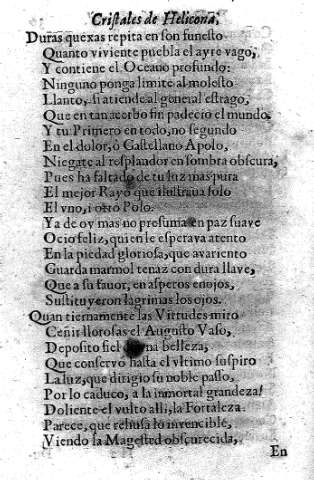 Cristales de Helicona,
Duras quexas repita en son funesto
Quanto viviente puebla el ayre vago,
Y contiene el Oceano profundo:
Ninguno ponga limite al molesto
Llanto, si atiende al general estrago,
Que en tan acerbo fin padeciò el mundo.
Y tu Primero en todo, no segundo
En el dolor, ò Castellano Apolo,
Niegate al resplandor en sombra obscura,
Pues ha faltado de tu luz mas pura
El mejor Rayo que ilustraua solo
El vno, i otro Polo.
Ya de oy mas no presuma en paz suave
Ocio feliz, quien le esperava atento
En la piedad gloriosa, que avariento
Guarda marmol tenaz con dura llave,
Que a su fauor, en asperos enojos,
Sustituyeron lagrimas los ojos.
Quan tiernamente las Virtudes miro
Ceñir llorosas el Augusto Vaso,
Deposito fiel de una belleza,
Que conservò hasta el vltimo suspiro
La luz, que dirigio su noble passo,
Por lo caduco, a la inmortal grandeza!
Doliente el vulto alli, la Fortaleza
Parece, que rehusa lo invencible,
Viendo la Magested obscurecida,
En